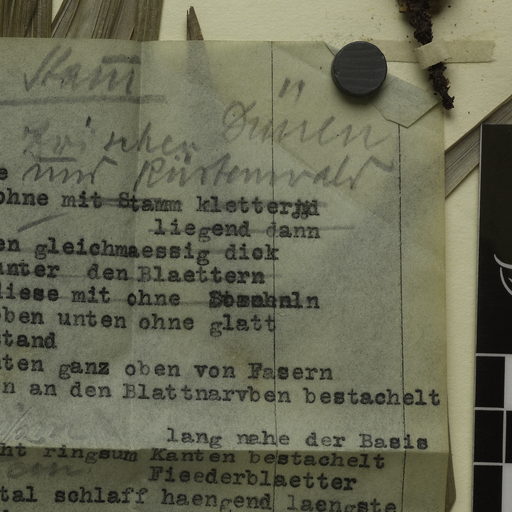 Stam̅m̅
Zwischen Dünen
e und Küstenwald
ohne mit Stamm kletternd
liegend dann
en gleichmaessig dick
unter den Blaettern
diese mit ohne Stacheln
oben unten ohne glatt
stand
ten ganz oben von Fasern
n an den Blattnarvben bestachelt
lang nahe der Basis
ht ringsum Kanten bestachelt
Fieederblaetter
tal schlaff haengend laengste